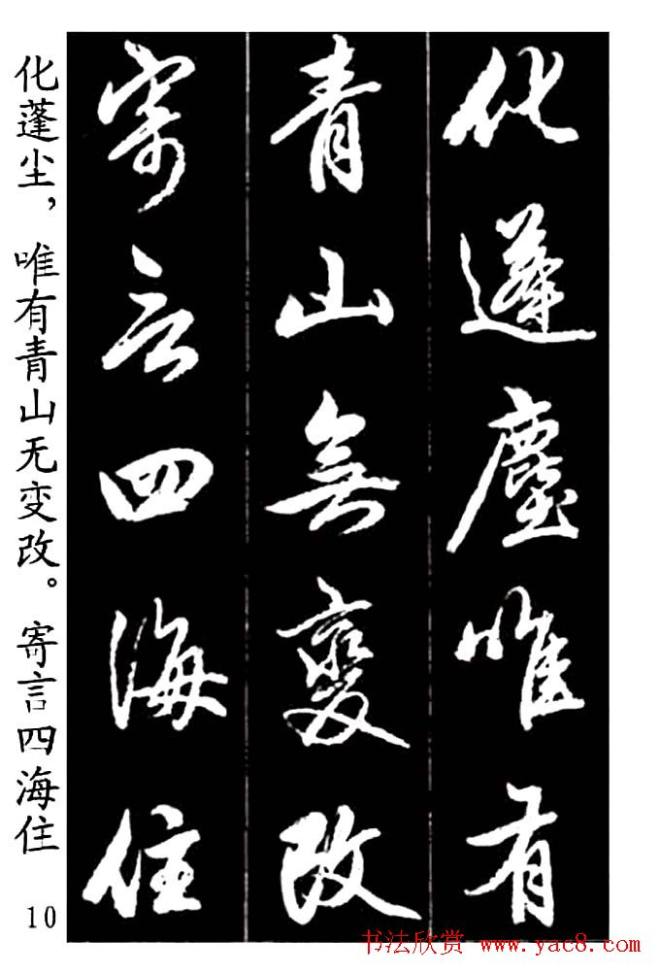 化蓬塵唯有
青山無變改
寄言四海住
化蓬尘，唯有青山无变改。寄言四海住
10
书法欣赏 www.yac8.com